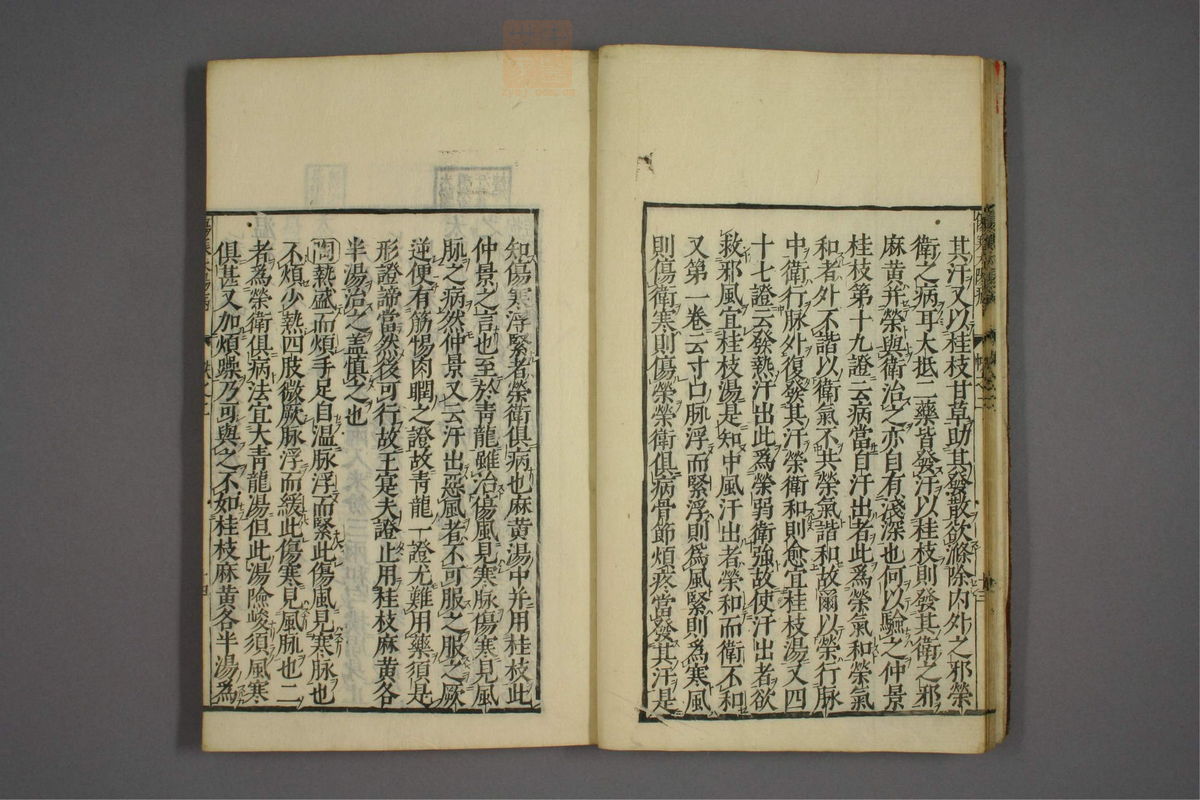 其汗又以桂枝甘草助其發散欲滌除内外之邪榮
衛之病耳大抵二藥皆發汗以桂枝則發其衛之邪
麻黄并榮與衛治之亦自有淺深也何以驗之仲景
桂枝第十九證云病當自汗出者此爲榮氣和榮氣
和者外不諧以衛氣不共榮氣諧和故爾以榮行脉
中衛行脉外復發其汗榮衛和則愈宜桂枝湯又四
十七證云發熱汗出此爲榮弱衛強故使汗出者欲
救邪風宜桂枝湯是知中風汗出者榮和而衛不和
又第一卷云寸口脉浮而緊浮則爲風緊則爲寒風
則傷衛寒則傷榮榮衛俱病骨節煩疼當發其汗是
知傷寒浮緊者榮衛俱病也麻黄湯中并用桂枝此
仲景之言也至於青龍雖治傷風見寒脉傷寒見風
脉之病然仲景又云汗出惡風者不可服之服之厥
逆便有筋惕肉瞤之證故青龍一證尤難用藥須是
形證諦當然後可行故王寔夫證止用桂枝麻黄各
半湯治之盖慎之也
問熱盛而煩手足自温脉浮而緊此傷風見寒脉也
不煩少熱四肢微厥脉浮而緩此傷寒見風脉也二
者爲榮衛俱病法宜大青龍湯但此湯險峻須風寒
俱甚又加煩躁乃可與之不如桂枝麻黄各半湯爲